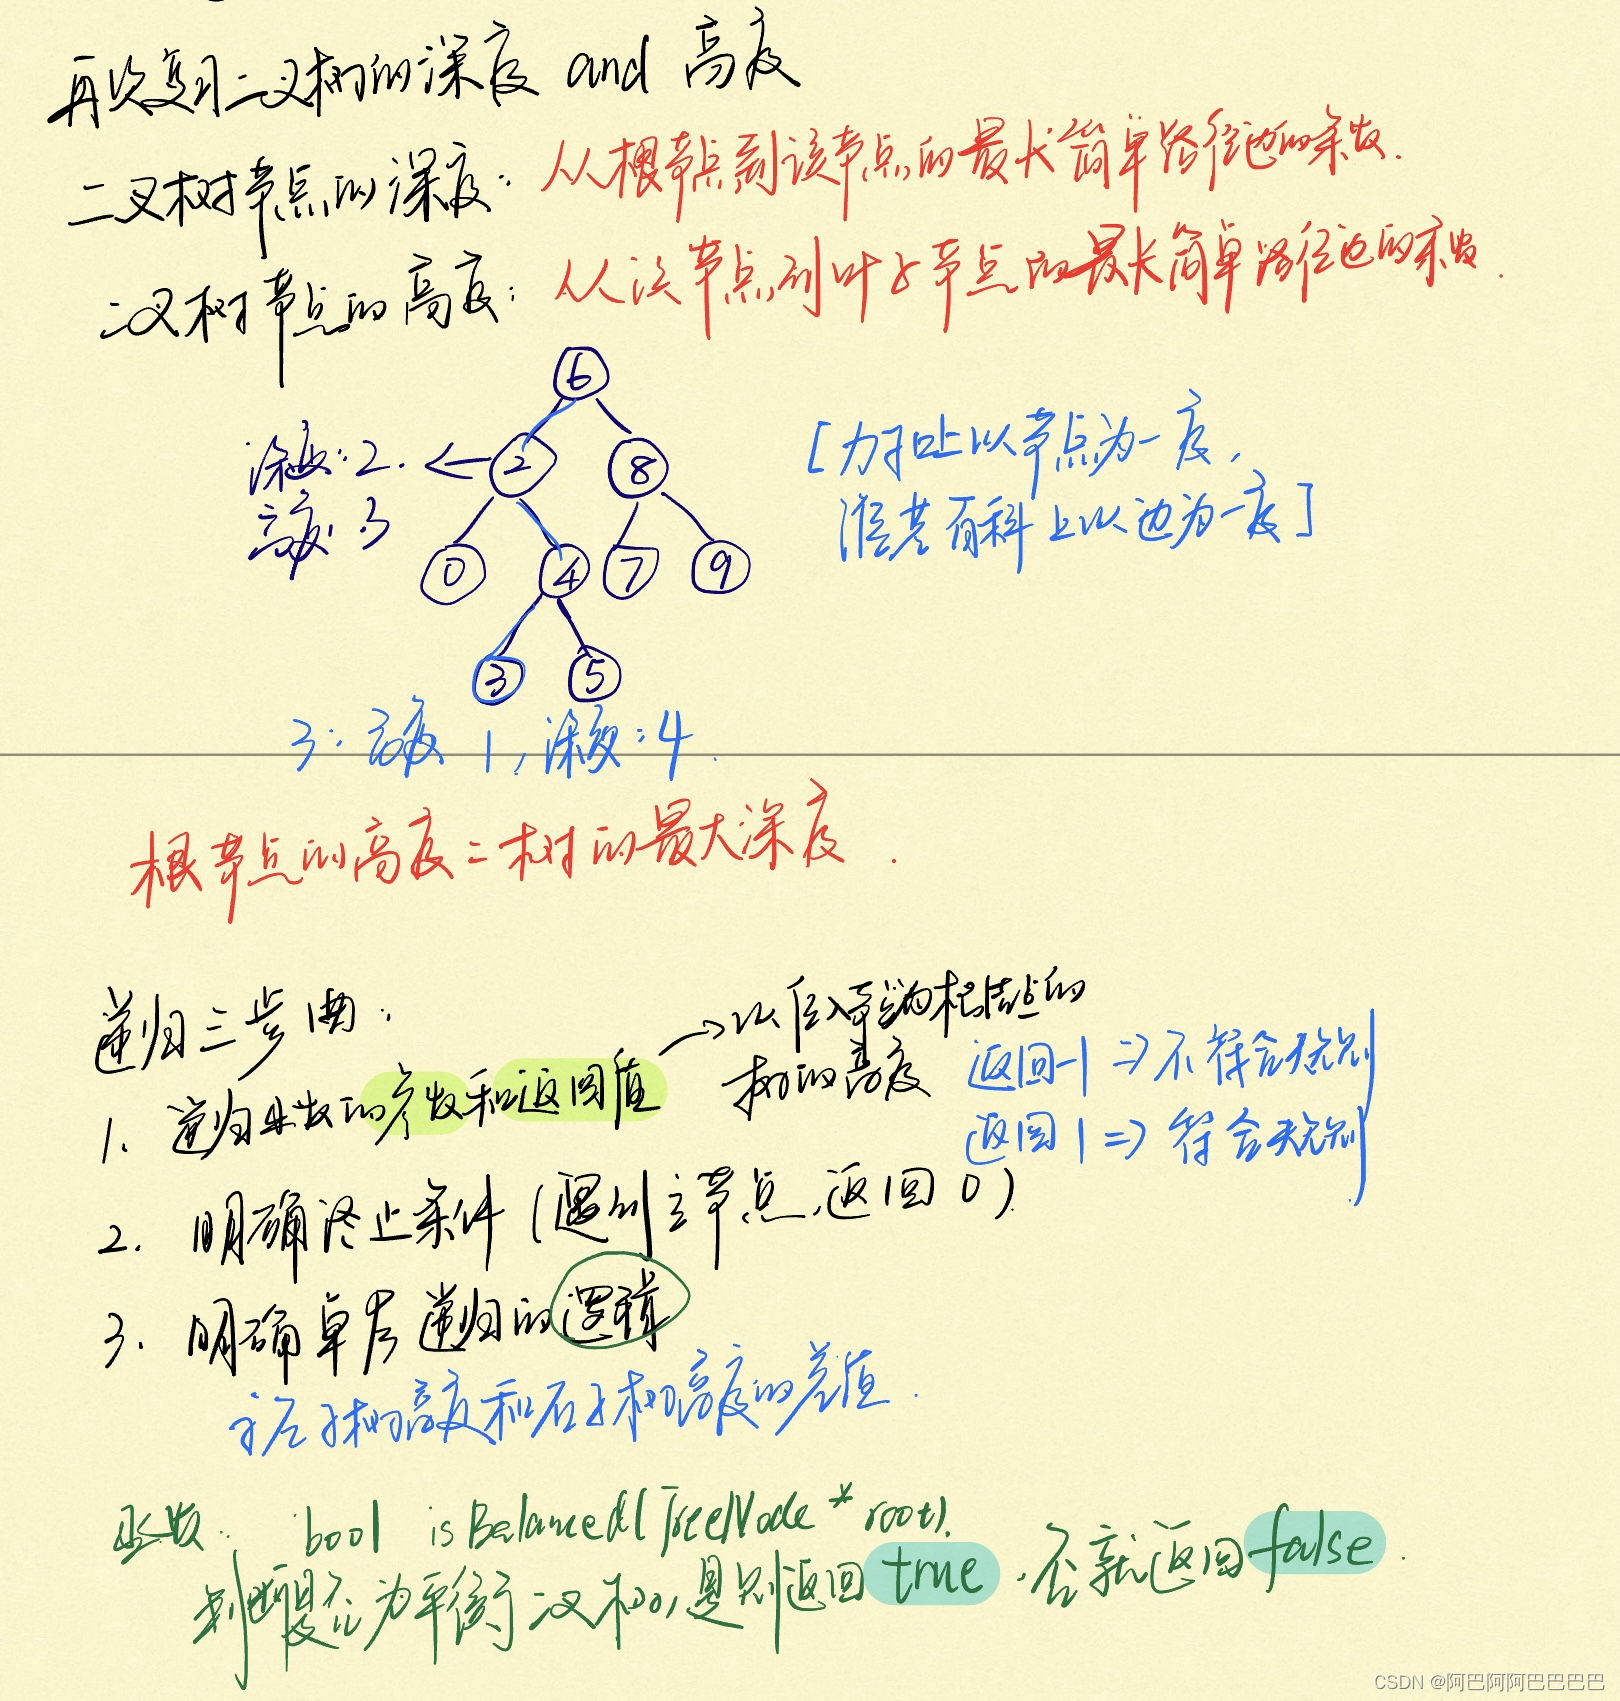 再次复习二叉树的深度 and 高度
二叉树节点的深度: 从根节点到该节点的最长简单路径边的条数.
二叉树节点的高度: 从该节点到叶子节点的最长简单路径边的条数.
6
深度:2.
2
8
[力扣上以节点为一度,
高度:3
0
4
7
9
维基百科上以边为一度]
3
5
3: 高度 1, 深度:4.
根节点的高度=树的最大深度.
递归三步曲:
→以传入节点为根节点的
树的高度
返回-1 => 不符合规则
返回1 => 符合规则
1. 递归函数的参数和返回值
2. 明确终止条件(遇到空节点,返回0)
3. 明确单层递归的逻辑
求左子树高度和右子树高度的差值.
函数: bool isBalanced(TreeNode* root).
判断是否为平衡二叉树,是则返回true.否就返回false.
CSDN @阿巴阿阿巴巴巴巴